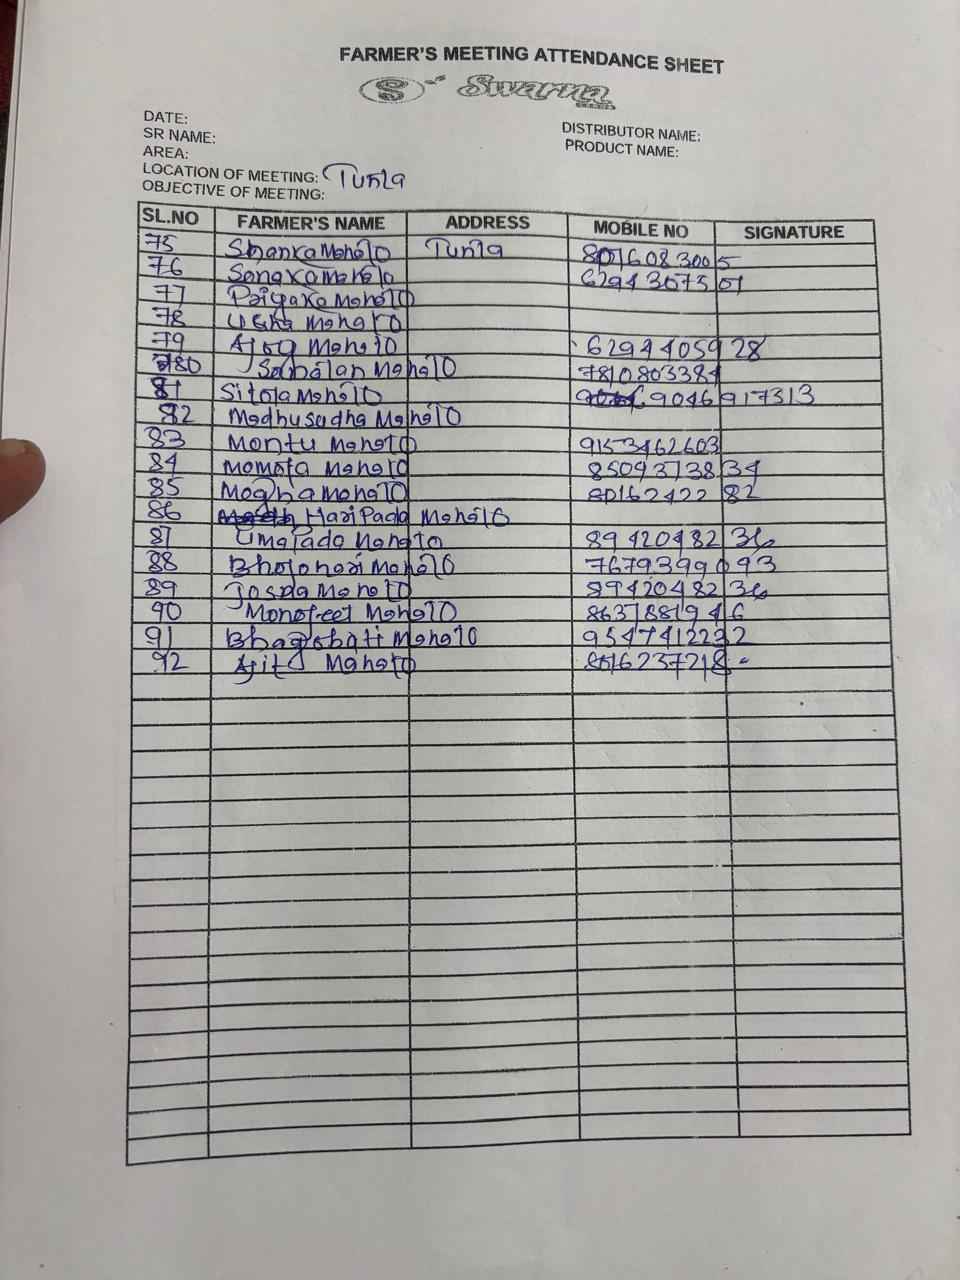 FARMER'S MEETING ATTENDANCE SHEET
S Swarna
DATE:
SR NAME:
AREA:
LOCATION OF MEETING: Tunta
OBJECTIVE OF MEETING:
DISTRIBUTOR NAME:
PRODUCT NAME:
SL.NO FARMER'S NAME ADDRESS MOBILE NO SIGNATURE
75 Shanka Mahato Tunta 8016083005
76 6294307501
77 Mahato
78 Usha Mahato
79 Ajog Mahato 6294405928
80 Sabalan Mahato 7810803384
81 Sitoja Mahato 9046917313
82 Madhusudha Mahato
83 Montu Mahato 9153462603
84 Momota Mahato 8509373834
85 Mogha Mahato 8016242282
86 Haripada Mahato
87 Umapada Mahato 8942048236
88 Bholohari Mahato 7679399093
89 Josna Mahato 8942048236
90 Monojeet Mahato 8637881946
91 Bhagobati Mahato 9547412232
92 Ajit Mahato 8016237218